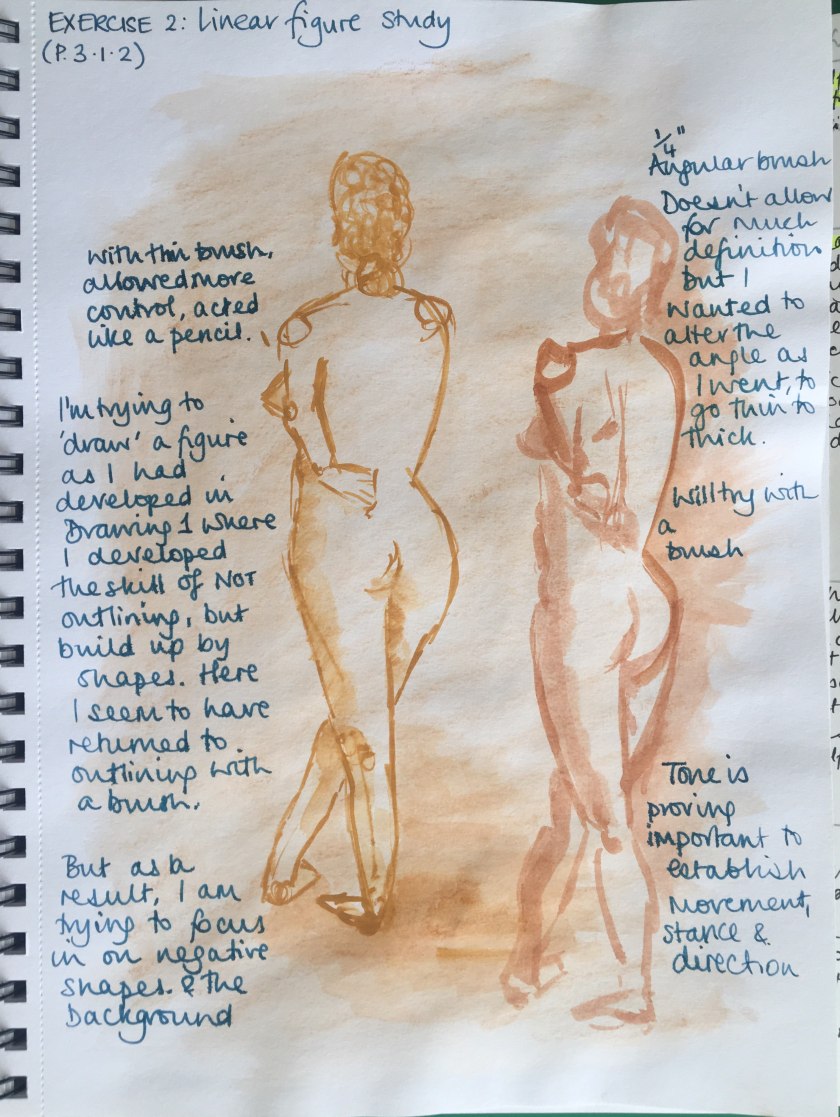 EXERCISE 2: Linear figure study
(P.3.1.2)
with thin brush,
allowed more
control, acted
like a pencil.
I'm trying to
'draw' a figure
as I had
developed in
Drawing 1 where
I developed
the skill of NOT
outlining, but
build up by
shapes. Here
I seem to have
returned to
outlining with
a brush.
But as a
result, I am
trying to focus
in on negative
shapes. & the
background
1/4"
Angular brush
Doesn't allow
for much
definition
but I
wanted to
alter the
angle as
I went, to
go thin to
thick.
Will try with
a
brush
Tone is
proving
important to
establish
movement,
stance &
direction